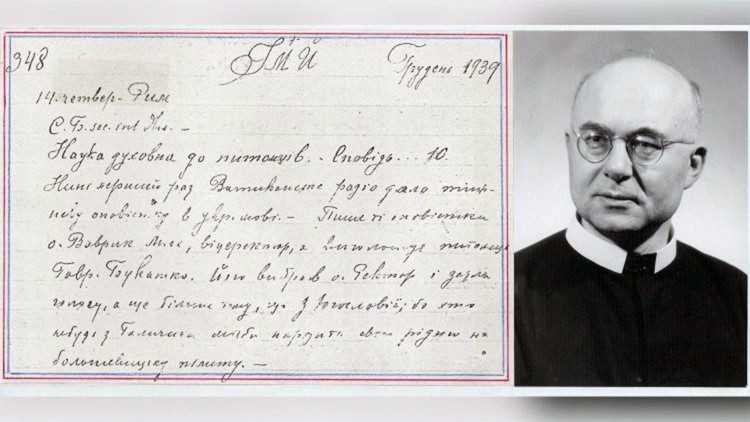 348 ІМЙ Грудень 1939
14. четвер - Рим
С. Б. sec. int.
Наука духовна до питомців. - Сповідь... 10.
Нині перший раз Ватиканське радіо дало
оповістку в укр. мові. - Пише ті оповістки
о. Ваврик Мих., віцеректор, а виголошує питомець
Гавр. Букатко. Його вибрав о. Ректор і зазля
голосу, а ще більше тому, що з Югославії, бо хто
небудь з Галичини міг би наразити свою рідню на
большевицку пімсту. -